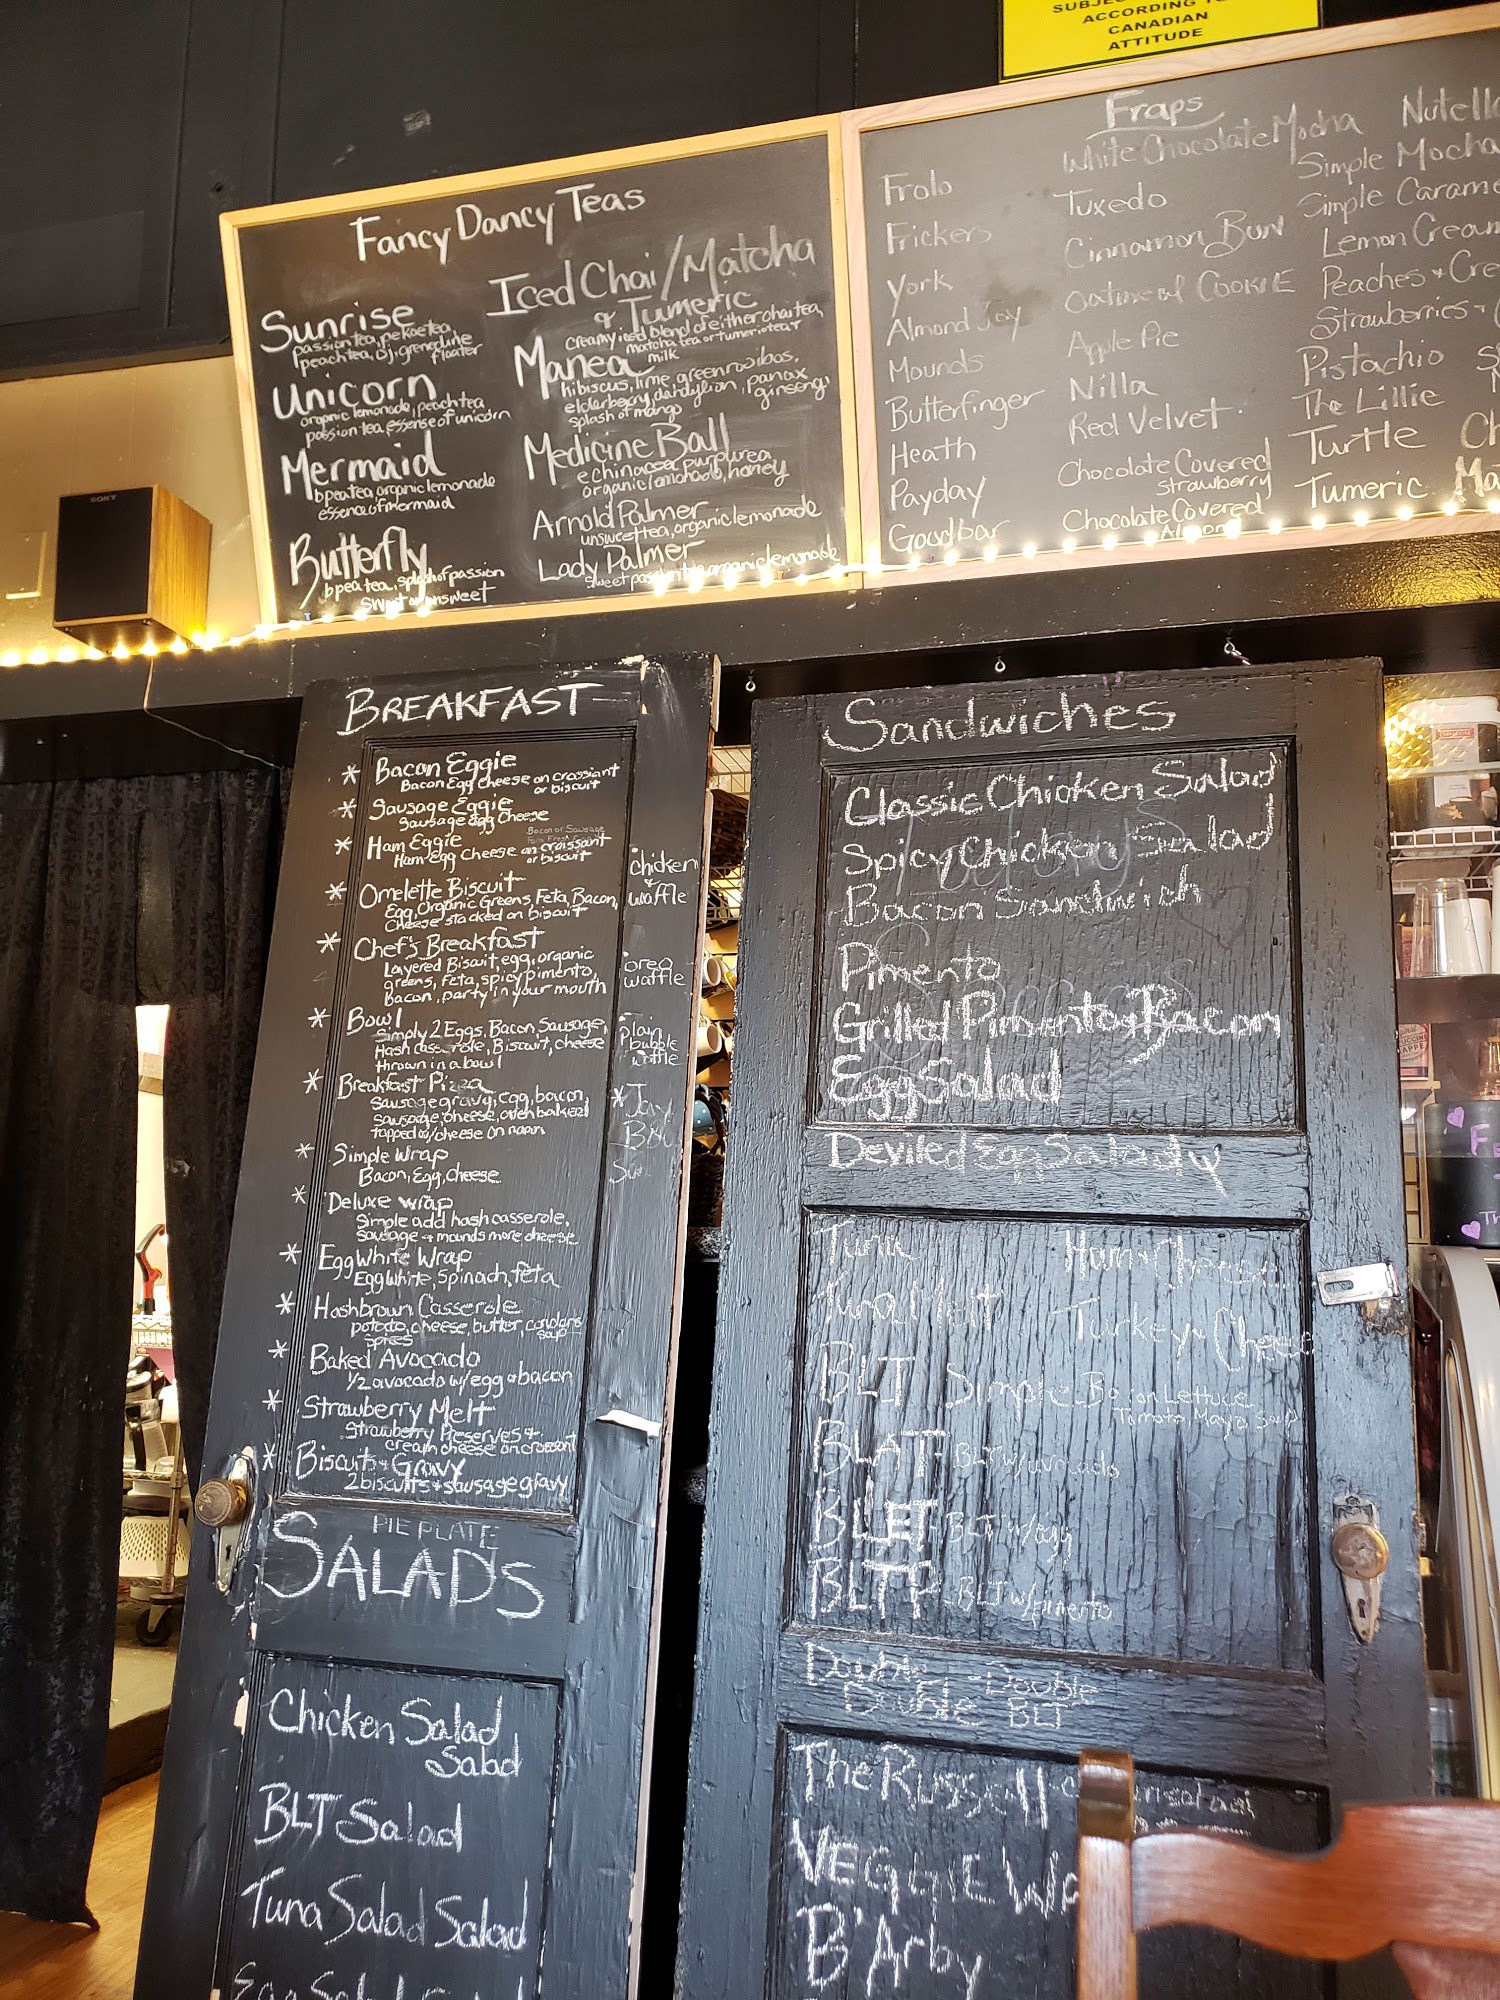 ACCORDING TO
CANADIAN
ATTITUDE
Fancy Dancy Teas
Sunrise
passion tea, pekoe tea,
peach tea, oj, grenadine
floater
Unicorn
organic lemonade, peach tea
passion tea, essense of unicorn
Mermaid
bpea tea, organic lemonade
essence of mermaid
Butterfly
bpea tea, splash of passion
sweet or unsweet
Iced Chai/Matcha
& Tumeric
creamy iced blend of either chai tea,
matcha tea or tumeric tea &
milk
Manea
hibiscus, lime, green rooibos,
elderberry, dandylion, panax
ginseng,
splash of mango
Medicine Ball
echinacea purpurea
organic lemonade, honey
Arnold Palmer
unsweet tea, organic lemonade
Lady Palmer
sweet organic lemonade
Fraps
Frolo
Frickers
York
Almond Joy
Mounds
Butterfinger
Heath
Payday
Goodbar
White Chocolate Mocha
Tuxedo
Cinnamon Bun
Oatmeal Cookie
Apple Pie
Nilla
Red Velvet
Chocolate Covered
Strawberry
Chocolate Covered
Almond
Nutella
Simple Mocha
Simple
Lemon
Peaches &
Strawberries &
Pistachio
The Lillie
Turtle
Tumeric
SONY
BREAKFAST
* Bacon Eggie
Bacon Egg Cheese on crassiant
or biscuit
* Sausage Eggie
Sausage Egg Cheese
* Ham Eggie
Bacon or Sausage
Ham Egg Cheese on croissant
or biscuit
* Omelette Biscuit
Egg, Organic Greens, Feta, Bacon,
Cheese stacked on biscuit
* Chef's Breakfast
Layered Biscuit, egg, organic
greens, feta, spicy pimento,
Bacon, party in your mouth
* Bowl
Simply 2 Eggs, Bacon, Sausage,
Hash casserole, Biscuit, cheese
thrown in a bowl
* Breakfast Pizza
Sausage gravy, egg, bacon,
sausage, cheese, oven baked
topped w/cheese on naan
* Simple Wrap
Bacon, Egg, Cheese
* Deluxe Wrap
Simple add hash casserole,
Sausage & mounds more cheese
* Egg White Wrap
Egg White, Spinach, feta
* Hashbrown Casserole
potato, cheese, butter, corn flakes
spices
* Baked Avocado
1/2 avocado w/egg & bacon
* Strawberry Melt
Strawberry Preserves &
cream cheese on croissant
* Biscuits & Gravy
2 biscuits & sausage gravy
chicken
&
waffle
oreo
waffle
Plain
bubble
waffle
PIE PLATE
SALADS
Chicken Salad
Salad
BLT Salad
Tuna Salad Salad
Egg Salad
Sandwiches
Classic Chicken Salad
Spicy Chicken Salad
Bacon Sandwich
Pimento
Grilled Pimento & Bacon
Egg Salad
Deviled Egg Salad
Tuna
Ham & Cheese
Tuna Melt
Turkey & Cheese
BLT Simple Bacon Lettuce
Tomato Mayo S&P
BLAT BLT w/avocado
BLET BLT w/egg
BLTP - BLT w/pimento
Double - Double
Double BLT
The Russell
VEGGIE
B'Arby